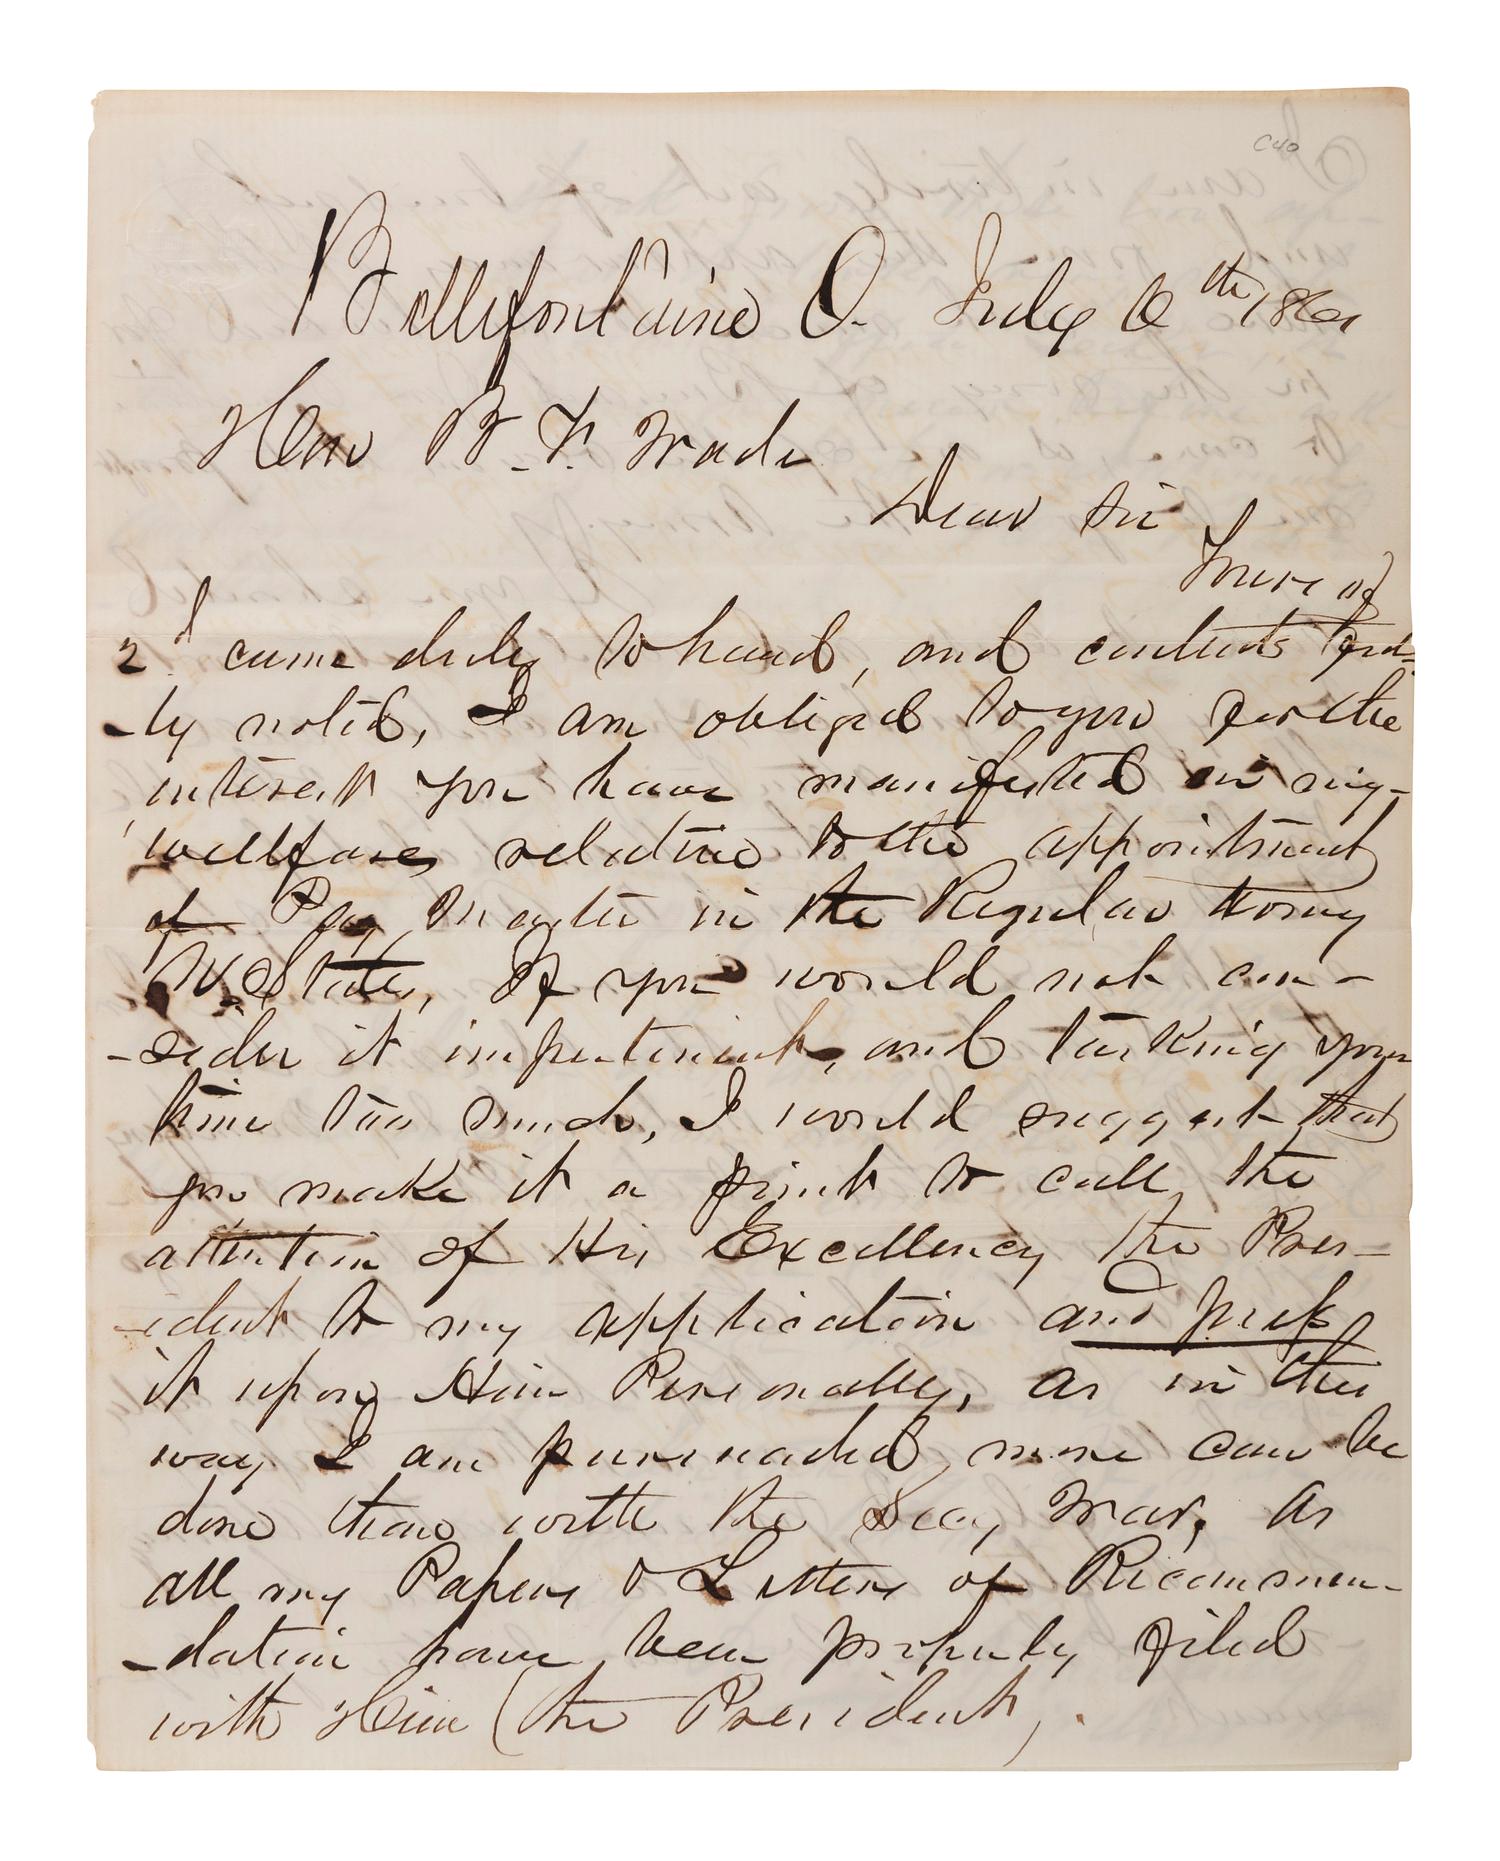 C40
Bellefontaine O. July 6th 1861
Hon B. F. Wade
Dear Sir
Yours of
2d came duly to hand, and contents
-ly noted, I am obliged to you for the
interest you have manifested in my
wellfare, relative to the appointment
of Pay Master in the Regular Army
U. States, If you would not con-
-sider it impertinent, and taking your
time too much, I would suggest that
you make it a point to call the
attention of His Excellency the Pres-
-ident to my application and press
it upon Him Personally, as in this
way I am pursuaded, more can be
done than with the Secy War, as
all my Papers & Letters of Recommen-
-dation have been properly filed
with Him (the President).